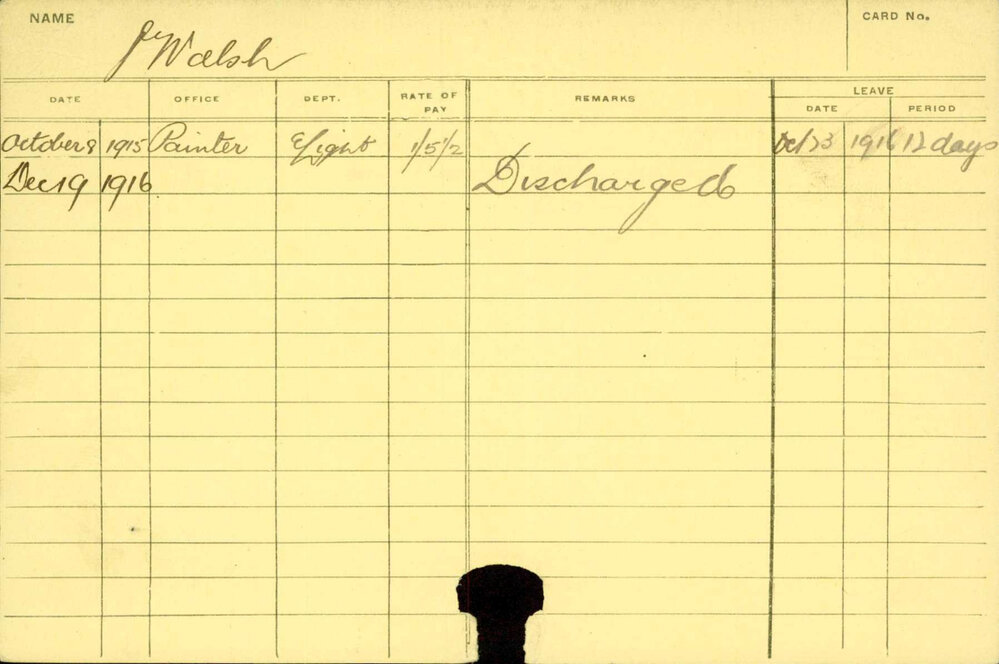 NAME
J Walsh
CARD No.
DATE OFFICE DEPT. RATE OF PAY REMARKS LEAVE
DATE PERIOD
October 8 1915 Painter E Light 1/5 1/2 Oct 23 1916 12 days
Dec 19 1916 Discharged